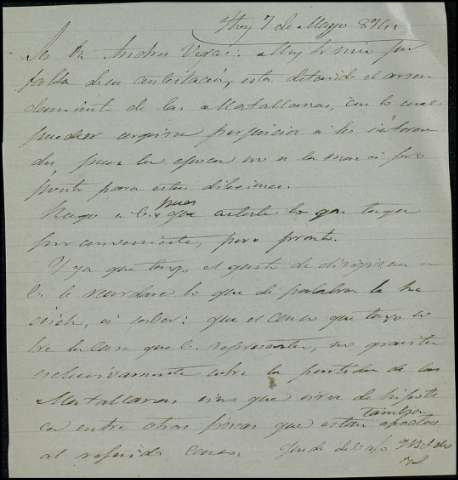 Hoy 7 de Mayo 874
Sr Dn Andres Vega: Muy Sr mio por
falta de su contestación, está detenido el arren
damiento de las Matallanas, con lo cual
pueden seguirse perjuicios a los interesa
dos pues la epoca no es la mas a pro
pósito para estas dilaciones.
Ruego a V. pues que active lo que tenga
por conveniente, pero pronto.
Y ya que tengo el gusto de dirigirme a
V. le recordaré lo que de palabra le he
dicho, a saber: que el censo que tengo so
bre la casa que V. representa, no gravita
exclusivamente sobre la partida de las
Matallanas sino que sirve de hipote
ca entre otras fincas que estan tambien afectas
al referido censo. Queda de V.